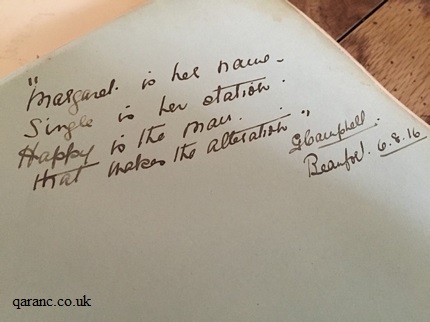 "Margaret is her name -
Single is her station.
Happy is the man.
that makes the alteration"
G Campbell.
Beaufort. 6.8.16
qaranc.co.uk